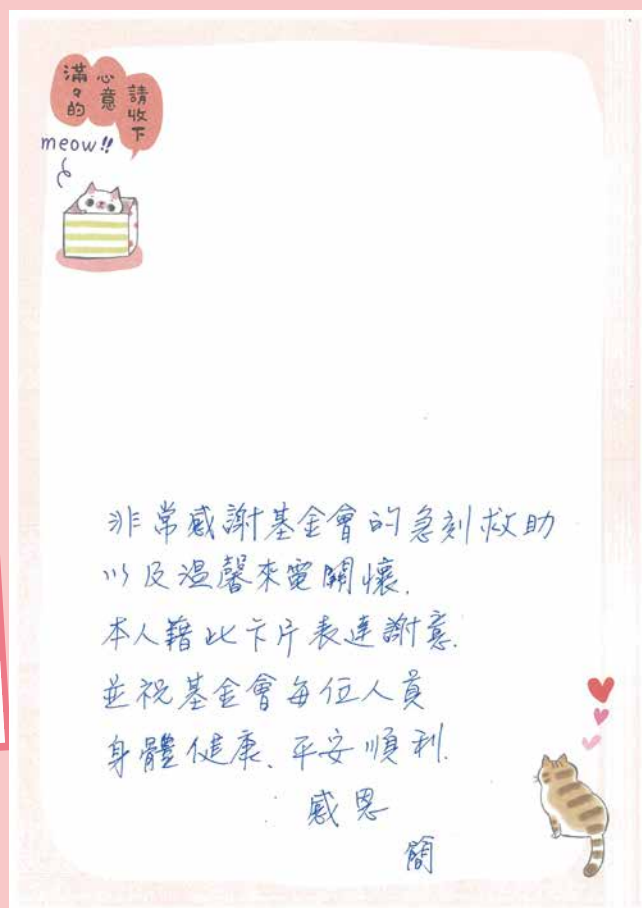 請收下
心意
滿々的
meow!!
非常感謝基金會的急刻救助
以及溫馨來電關懷.
本人藉此卡片表達謝意.
並祝基金會每位人員
身體健康、平安順利.
感恩
簡